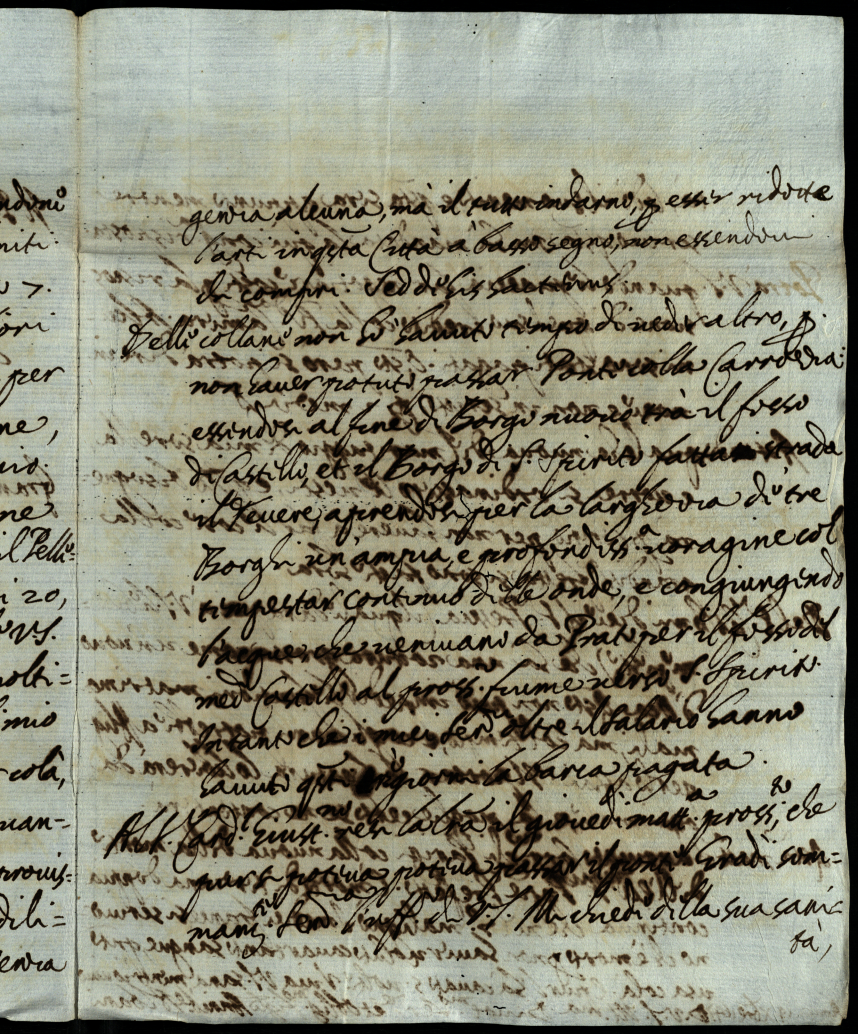 ndoni
niti
7.
ori
per
ne,
uio.
ne
il Pelli=
i 20,
VS.
olti=
imio
colà,
uan=
prouis=
dili=
genza
genza alcuna, mà il tutto indarno, p esser ridotte
l'arti in qsta Città à basso segno, non essendoui
da compri. Sed de his hactenus
Delle collane non hò hauuto tempo di ueder altro, p
non hauer potuto passar Ponte colla Carrozza:
essendosi al fine di Borgo nuouo trà il fosso
di Castello, et il Borgo di S. Spirito fattasi strada
il Teuere, aprendosi per la larghezza de tre
Borghi un'ampia, e profondiss.a uoragine col
tempestar continuo delle onde, e congiungendo
l'acque, che ueniuano da Prati per il fosso del
med.o Castello al pross.o fiume uerso S. Spirito.
Intanto che i miei Ser.ri oltre il salario hanno
hauuto qsti giorni la barca pagata.
All' Card. Giust.no resi la lra il giouedi matt.a pross.o, che
pure si potiua potiua passar il ponte. Gradì som=
mam.te l'uff.o di V.S. Mi chiedè della sua sani=
tà,